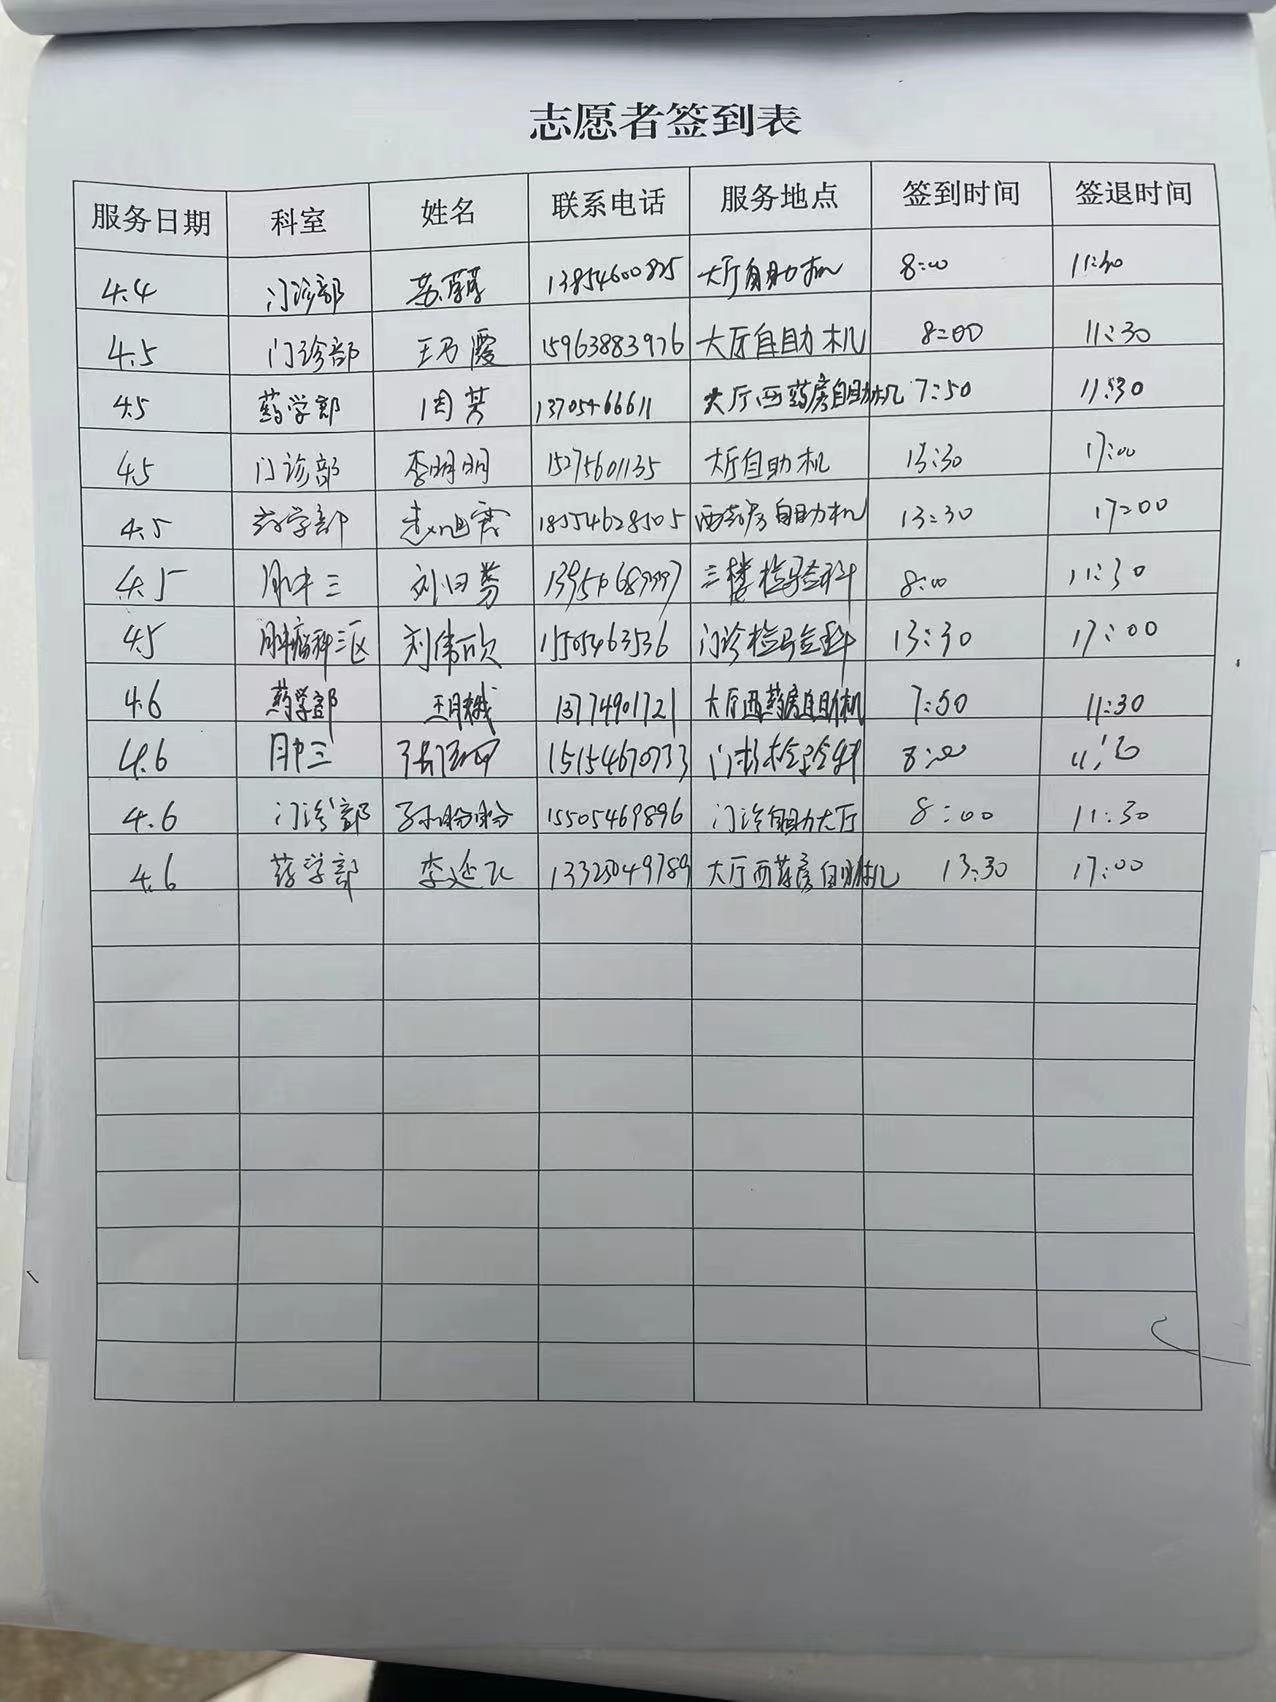 志愿者签到表
服务日期 科室 姓名 联系电话 服务地点 签到时间 签退时间
4.4 门诊部 13854600825 大厅自助机 8:00 11:30
4.5 门诊部 15963883976 大厅自助机 8:00 11:30
4.5 药学部 周芳 13705466611 大厅西药房自助机 7:50 11:30
4.5 门诊部 李明明 15275601135 大厅自助机 13:30 17:00
4.5 药学部 赵旭霞 18554628505 西药房自助机 13:30 17:00
4.5 肿三 三楼检验科 8:00 11:30
4.5 肿瘤科三区 刘伟欣 15505463536 门诊检验科 13:30 17:00
4.6 药学部 13774901721 大厅西药房自助机 7:50 11:30
4.6 肿三 15154670733 门诊检验科 8:00 11:30
4.6 门诊部 孙盼盼 15505469896 门诊自助大厅 8:00 11:30
4.6 药学部 李延飞 13325049789 大厅西药房自助机 13:30 17:00